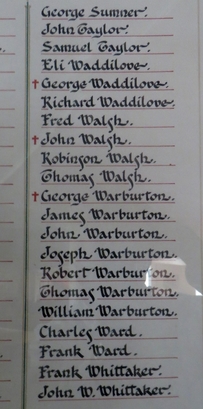 George Sumner.
John Taylor.
Samuel Taylor.
Eli Waddilove.
† George Waddilove.
Richard Waddilove.
Fred Walsh.
† John Walsh.
Robinson Walsh.
Thomas Walsh.
† George Warburton.
James Warburton.
John Warburton.
Joseph Warburton.
Robert Warburton.
Thomas Warburton.
William Warburton.
Charles Ward.
Frank Ward.
Frank Whittaker.
John W. Whittaker.